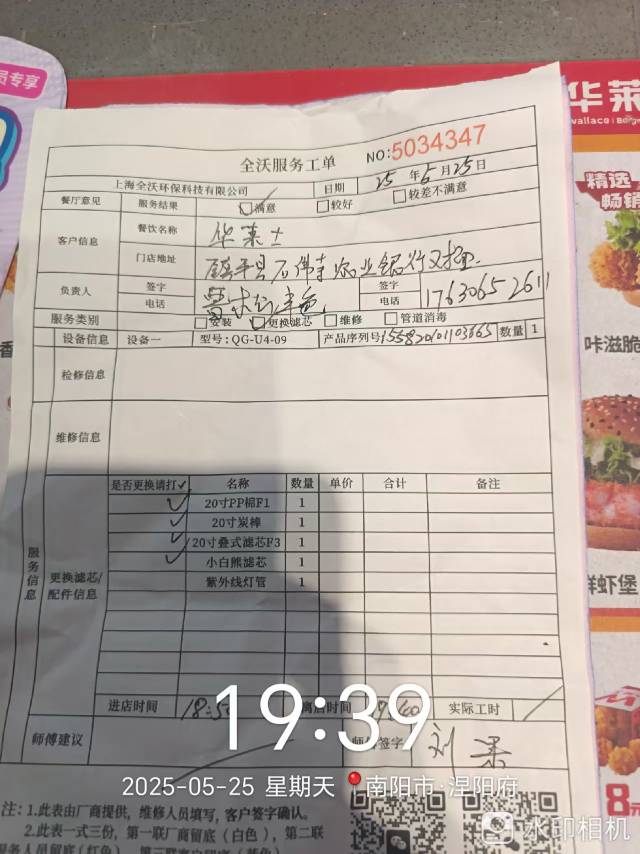 员专享
华莱
wallace
精选
畅销
全沃服务工单 NO:5034347
上海全沃环保科技有限公司 日期 25 年 5 月 25 日
餐厅意见 服务结果 满意 较好 较差不满意
客户信息 餐饮名称 华莱士
门店地址 镇平县石佛寺农业银行对面
负责人 签字 签字
电话 电话 17630652611
服务类别 安装 更换滤芯 维修 管道消毒
设备信息 设备一 型号:QG-U4-09 产品序列号 155820101103665 数量 1
检修信息
咔滋脆
维修信息
服务信息
更换滤芯/配件信息
是否更换请打✓ 名称 数量 单价 合计 备注
✓ 20寸PP棉F1 1
✓ 20寸炭棒 1
✓ 20寸叠式滤芯F3 1
✓ 小白熊滤芯 1
紫外线灯管 1
鲜虾堡
进店时间 18:50 离店时间 实际工时
师傅建议 签字 刘
19:39
2025-05-25 星期天 南阳市·涅阴府
8元
注:1.此表由厂商提供,维修人员填写,客户签字确认。
2.此表一式三份,第一联厂商留底(白色),第二联
服务人员留底(红色),第三联客户留底(蓝色)
水印相机